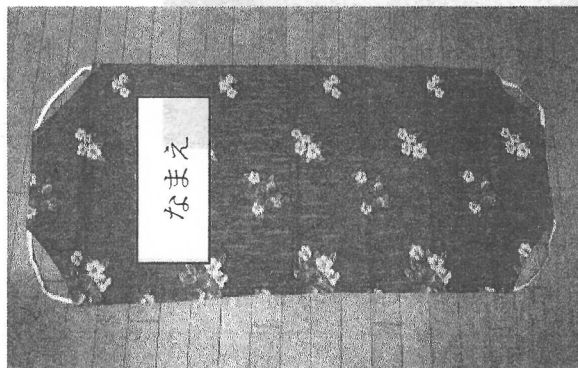 なまえ